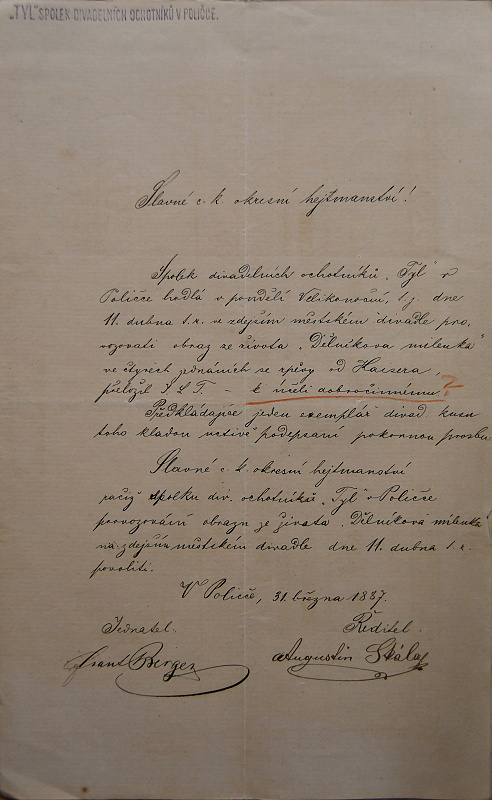 „TYL“ SPOLEK DIVADELNÍCH OCHOTNÍKŮ V POLIČCE.
Slavné c. k. okresní hejtmanství!
Spolek divadelních ochotníků „Tyl“ v
Poličce hodlá v pondělí Velikonoční, t. j. dne
11. dubna t. r. ve zdejším městském divadle pro-
vozovati obraz ze života „Dělníkova milenka“
ve čtyřech jednáních se zpěvy od Haisera,
přeložil J. L. T. – k účeli dobročinnému. ?
Předkládajíce jeden exemplář divad. kusu
toho kladou uctivě podepsaní pokornou prosbu
Slavné c. k. okresní hejtmanství
račiž spolku div. ochotníků „Tyl“ v Poličce
provozování obrazu ze života „Dělníková milenka“
na zdejším městském divadle dne 11. dubna t. r.
povoliti.
V Poličce, 31. března 1887.
Jednatel. Ředitel.
Frant. Augustin Skála